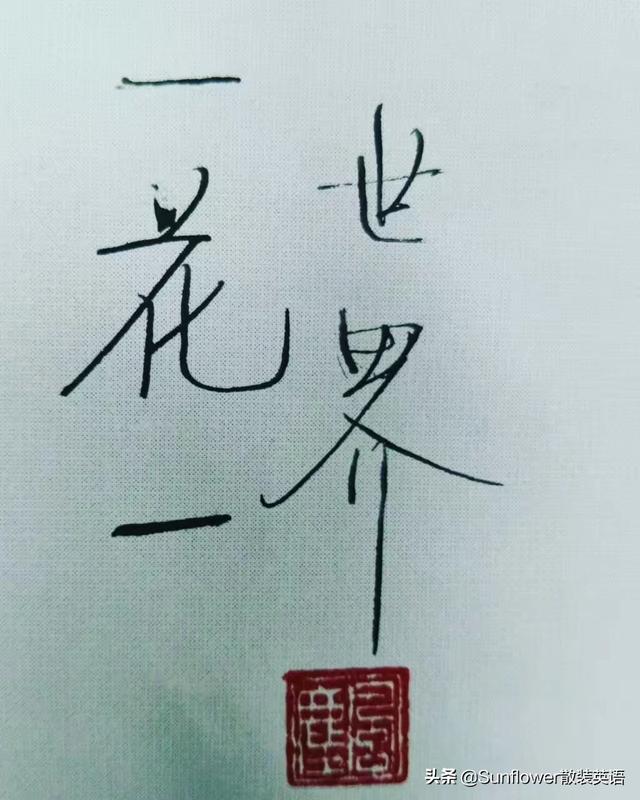 一花一
世界
头条 @Sunflower散装英语